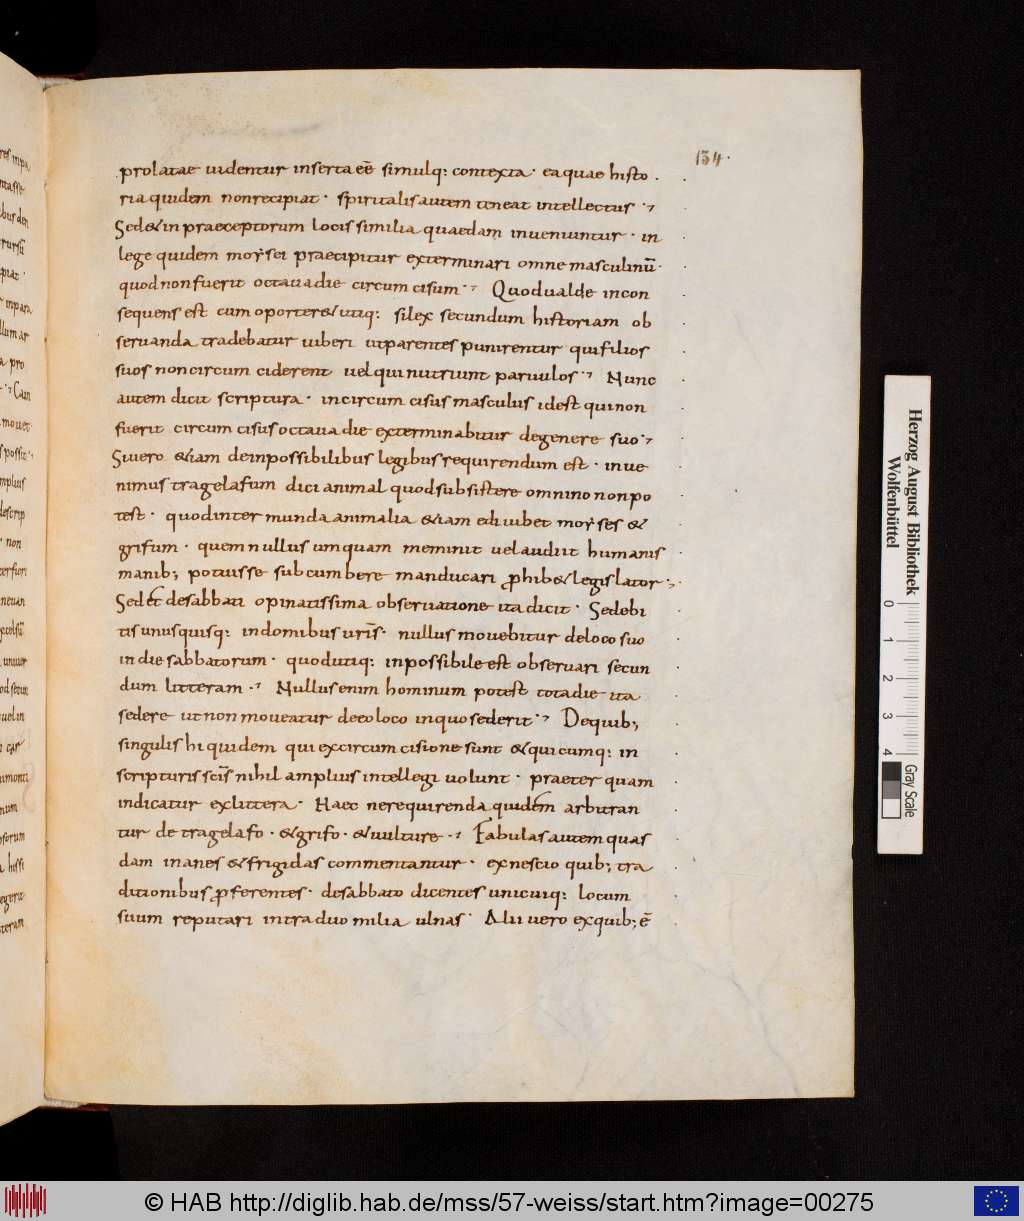 134.
prolatae uidentur inserta eē simulq: contexta · ea quae histo
ria quidem non recipiat · spiritalis autem teneat intellectus ·
Sed & in praeceptorum locis similia quaedam inueniuntur · in
lege quidem moẏsei praecipitur exterminari omne masculinū·
quod non fuerit octaua die circumcisum · Quod ualde incon
sequens est cum oporter& utiq: si lex secundum historiam ob
seruanda tradebatur iuberi ut parentes punirentur qui filios
suos non circumciderent uel qui nutriunt paruulos · Nunc
autem dicit scriptura · incircumcisus masculus idest qui non
fuerit circumcisus octaua die exterminabitur de genere suo ·
Si uero &iam de inpossibilibus legibus requirendum est · inue
nimus tragelafum dici animal quod subsistere omnino non po
test · quod inter munda animalia &iam edi iubet moẏses &
grifum · quem nullus umquam meminit uel audiit humanis
manib; potuisse subcumbere manducari ꝓhib& legislator ·
Sed et de sabbati opinatissima obseruatione ita dicit · Sedebi
tis unusquisq: in domibus urīs · nullus mouebitur de loco suo
in die sabbatorum · quod utiq: inpossibile est obseruari secun
dum litteram · Nullus enim hominum potest tota die ita
sedere ut non moueatur de eo loco in quo sederit · De quib;
singulis hi quidem qui ex circumcisione sunt & quicumq: in
scripturis scīs nihil amplius intellegi uolunt · praeter quam
indicatur ex littera · Haec ne requirenda quidem arbitran
tur de tragelafo · & grifo · & uulture · Fabulas autem quas
dam inanes & frigidas commentantur · ex nescio quib; tra
ditionibus ꝓferentes · de sabbato dicentes unicuiq: locum
suum reputari intra duo milia ulnas · Alii uero ex quib; ē
Herzog August Bibliothek
Wolfenbüttel
0 1 2 3 4
Gray Scale
© HAB http://diglib.hab.de/mss/57-weiss/start.htm?image=00275